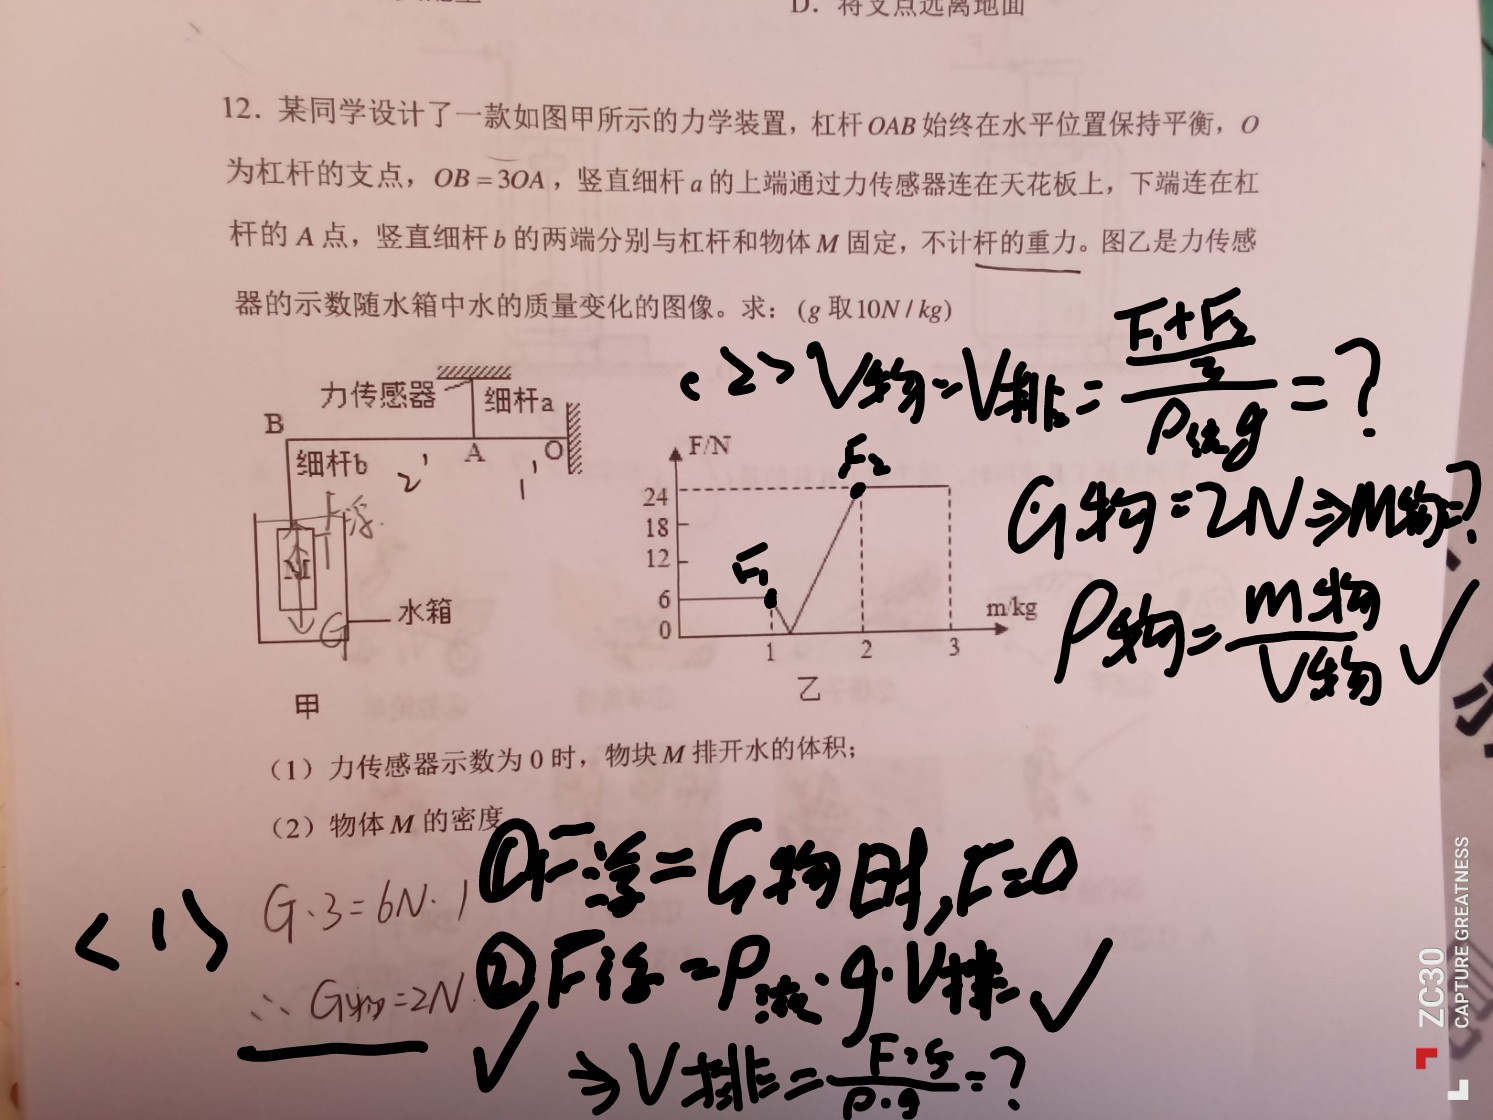 D. 将支点远离地面
12. 某同学设计了一款如图甲所示的力学装置，杠杆 OAB 始终在水平位置保持平衡，O
为杠杆的支点，OB = 3OA，竖直细杆 a 的上端通过力传感器连在天花板上，下端连在杠
杆的 A 点，竖直细杆 b 的两端分别与杠杆和物体 M 固定，不计杆的重力。图乙是力传感
器的示数随水箱中水的质量变化的图像。求：(g 取10N / kg)
<2> V物=V排₂= (F₁+F₂)/3 / ρ液g =?
G物=2N⇒M物=?
ρ物= m物/V物 ✓
力传感器
细杆a
B
A
O
细杆b
2
1
F浮
M
G
水箱
甲
F/N
24
18
12
6
0
F₁
F₂
1
2
3
m/kg
乙
（1）力传感器示数为 0 时，物块 M 排开水的体积；
（2）物体 M 的密度
<1> G·3=6N·1
∴ G物=2N
①F浮=G物时,F=0
②F浮=ρ液·g·V排 ✓
✓ ⇒V排= F浮/ρ·g =?
ZC30
CAPTURE GREATNESS